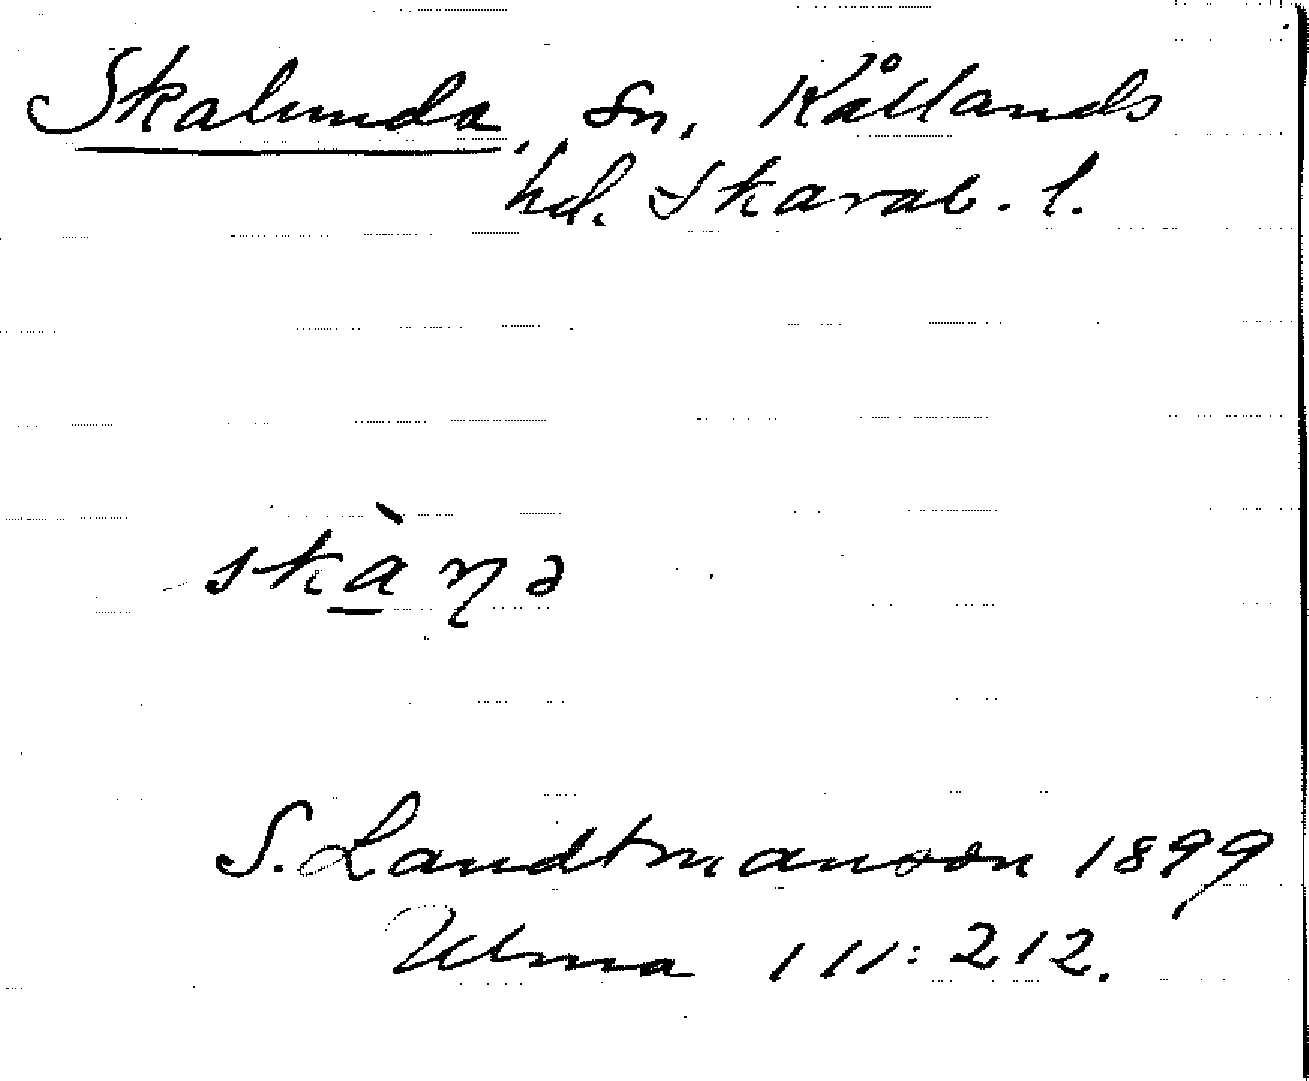 Skalunda, sn, Kållands
hd. Skarab. l.
skàŋə
S. Landtmanson 1899
Ulma 111:212.